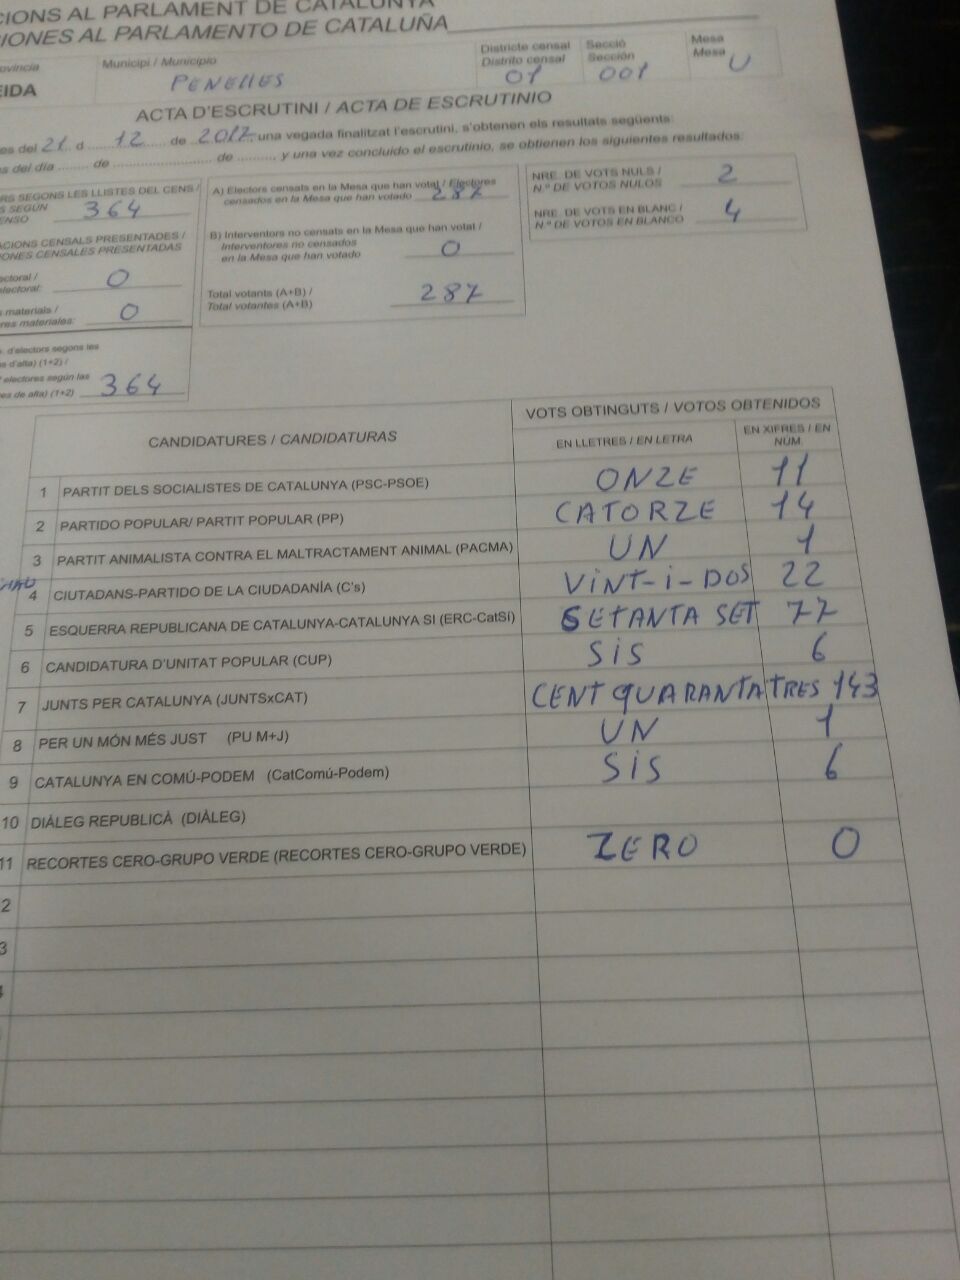 CIONS AL PARLAMENT DE CATALUNYA
IONES AL PARLAMENTO DE CATALUÑA
ovincia
EIDA
Municipi / Municipio
PENELLES
Districte censal
Distrito censal
01
Secció
Sección
001
Mesa
Mesa
U
ACTA D'ESCRUTINI / ACTA DE ESCRUTINIO
es del 21 d 12 de 2017, una vegada finalitzat l'escrutini, s'obtenen els resultats següents:
s del día ........ de ........................ de ......... y una vez concluido el escrutinio, se obtienen los siguientes resultados:
RS SEGONS LES LLISTES DEL CENS /
S SEGÚN
ENSO
364
ACIONS CENSALS PRESENTADES /
IONES CENSALES PRESENTADAS
ectoral /
electoral:
0
s materials /
res materiales:
0
. d'electors segons les
s d'alta) (1+2) /
electores según las
es de alta) (1+2)
364
A) Electors censats en la Mesa que han votat / Electores
censados en la Mesa que han votado
287
B) Interventors no censats en la Mesa que han votat /
Interventores no censados
en la Mesa que han votado
0
Total votants (A+B) /
Total votantes (A+B)
287
NRE. DE VOTS NULS /
N.º DE VOTOS NULOS
2
NRE. DE VOTS EN BLANC /
N.º DE VOTOS EN BLANCO
4
CANDIDATURES / CANDIDATURAS
VOTS OBTINGUTS / VOTOS OBTENIDOS
EN LLETRES / EN LETRA
EN XIFRES / EN
NÚM.
1 PARTIT DELS SOCIALISTES DE CATALUNYA (PSC-PSOE) ONZE 11
2 PARTIDO POPULAR/ PARTIT POPULAR (PP) CATORZE 14
3 PARTIT ANIMALISTA CONTRA EL MALTRACTAMENT ANIMAL (PACMA) UN 1
4 CIUTADANS-PARTIDO DE LA CIUDADANÍA (C's) VINT-i-DOS 22
5 ESQUERRA REPUBLICANA DE CATALUNYA-CATALUNYA SI (ERC-CatSí) SETANTA SET 77
6 CANDIDATURA D'UNITAT POPULAR (CUP) SIS 6
7 JUNTS PER CATALUNYA (JUNTSxCAT) CENT QUARANTA TRES 143
8 PER UN MÓN MÉS JUST (PU M+J) UN 1
9 CATALUNYA EN COMÚ-PODEM (CatComú-Podem) SIS 6
10 DIÀLEG REPUBLICÀ (DIÀLEG)
11 RECORTES CERO-GRUPO VERDE (RECORTES CERO-GRUPO VERDE) ZERO 0
2
3
4